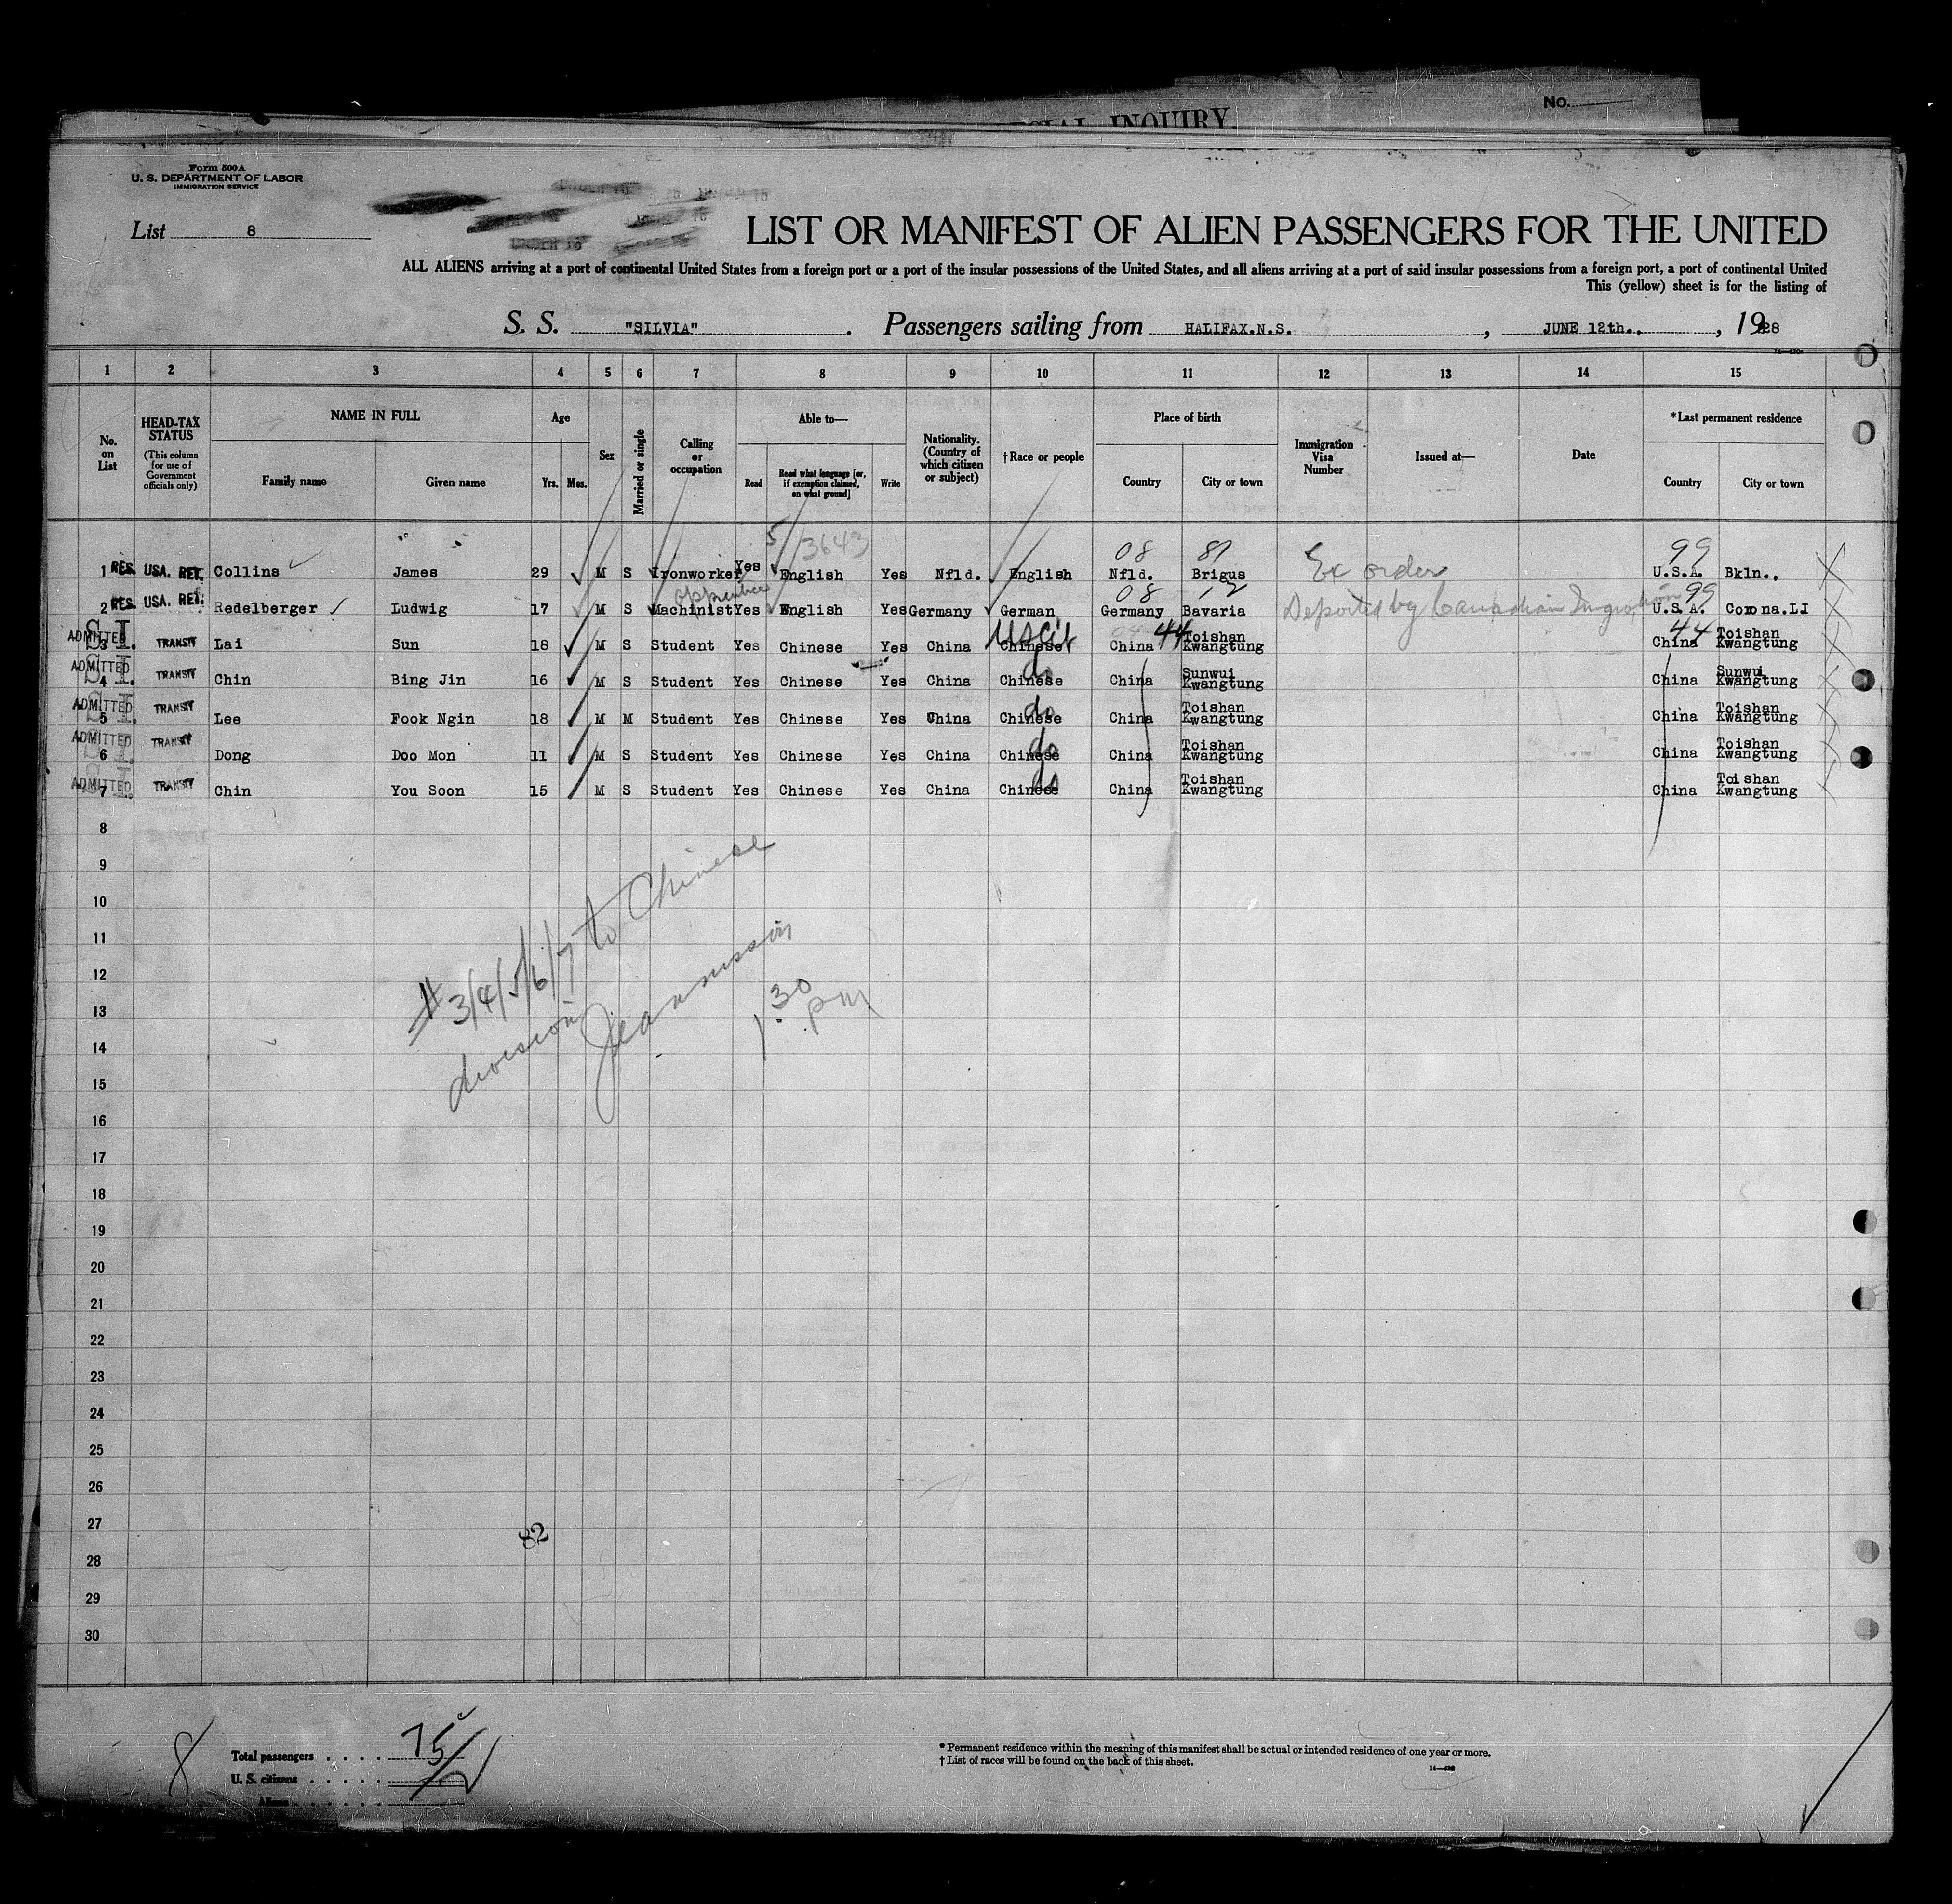 SPECIAL INQUIRY
NO.
Form 500 A
U. S. DEPARTMENT OF LABOR
IMMIGRATION SERVICE
List 8
LIST OR MANIFEST OF ALIEN PASSENGERS FOR THE UNITED
ALL ALIENS arriving at a port of continental United States from a foreign port or a port of the insular possessions of the United States, and all aliens arriving at a port of said insular possessions from a foreign port, a port of continental United
This (yellow) sheet is for the listing of
S. S. "SILVIA" . Passengers sailing from HALIFAX.N.S. , JUNE 12th., , 1928
1 2 3 4 5 6 7 8 9 10 11 12 13 14 15
No. on List
HEAD-TAX STATUS
(This column for use of Government officials only)
NAME IN FULL
Family name Given name
Age
Yrs. Mos.
Sex
Married or single
Calling or occupation
Able to—
Read Read what language [or, if exemption claimed, on what ground] Write
Nationality. (Country of which citizen or subject)
†Race or people
Place of birth
Country City or town
Immigration Visa Number
Issued at—
Date
*Last permanent residence
Country City or town
5/3643 08 81 99
1 RES. USA. RET. Collins James 29 M S Ironworker Yes English Yes Nfld. English Nfld. Brigus Ex order U.S.A. Bkln.,
apprentice 08 12 99
2 RES. USA. RET. Redelberger Ludwig 17 M S Machinist Yes English Yes Germany German Germany Bavaria Deported by Canadian Immigration U.S.A. Corona.LI
S.I. US Cit 44 44
3 ADMITTED TRANSIT Lai Sun 18 M S Student Yes Chinese Yes China Chinese China Toishan Kwangtung China Toishan Kwangtung
S.I. do
4 ADMITTED TRANSIT Chin Bing Jin 16 M S Student Yes Chinese Yes China Chinese China Sunwui Kwangtung China Sunwui Kwangtung
S.I. do
5 ADMITTED TRANSIT Lee Fook Ngin 18 M M Student Yes Chinese Yes China Chinese China Toishan Kwangtung China Toishan Kwangtung
S.I. do
6 ADMITTED TRANSIT Dong Doo Mon 11 M S Student Yes Chinese Yes China Chinese China Toishan Kwangtung China Toishan Kwangtung
S.I. do
7 ADMITTED TRANSIT Chin You Soon 15 M S Student Yes Chinese Yes China Chinese China Toishan Kwangtung China Toishan Kwangtung
8
9
10
11
12
13
14
15
16
17
18
19
20
21
22
23
24
25
26
27
28
29
30
# 3/4/5/6/7 to Chinese
division
1.30 pm
82
8
Total passengers . . . . 7
U. S. citizens . . . . . 5
Aliens . . . . . 2
* Permanent residence within the meaning of this manifest shall be actual or intended residence of one year or more.
† List of races will be found on the back of this sheet.
14—430